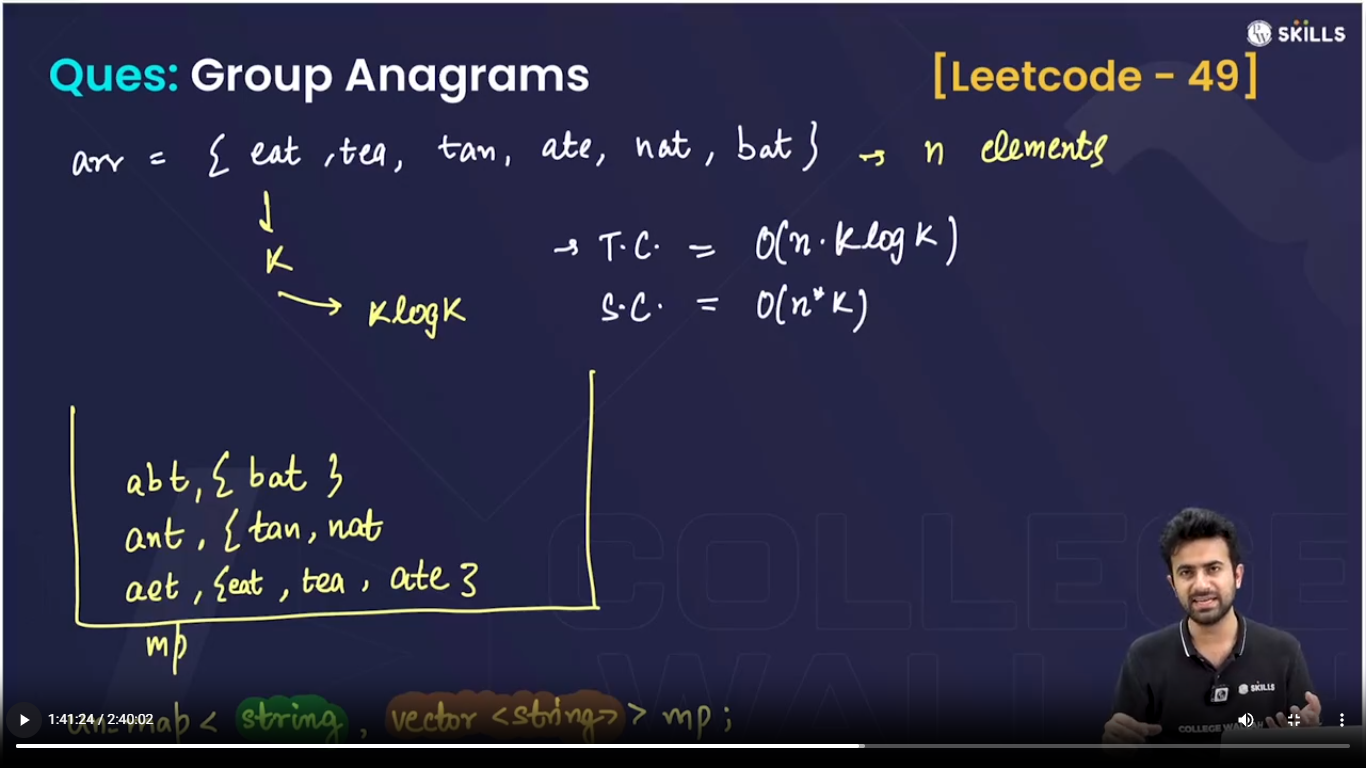 SKILLS
Ques: Group Anagrams [Leetcode - 49]
arr = { eat , tea, tan, ate, nat, bat } → n elements
K
→ T.C. = O(n . K log K)
K log K
S.C. = O(n * K)
abt, { bat }
ant, { tan, nat
aet, {eat, tea, ate }
mp
map < string, vector <string> > mp ;
COLLEGE
SKILLS
1:41:24 / 2:40:02